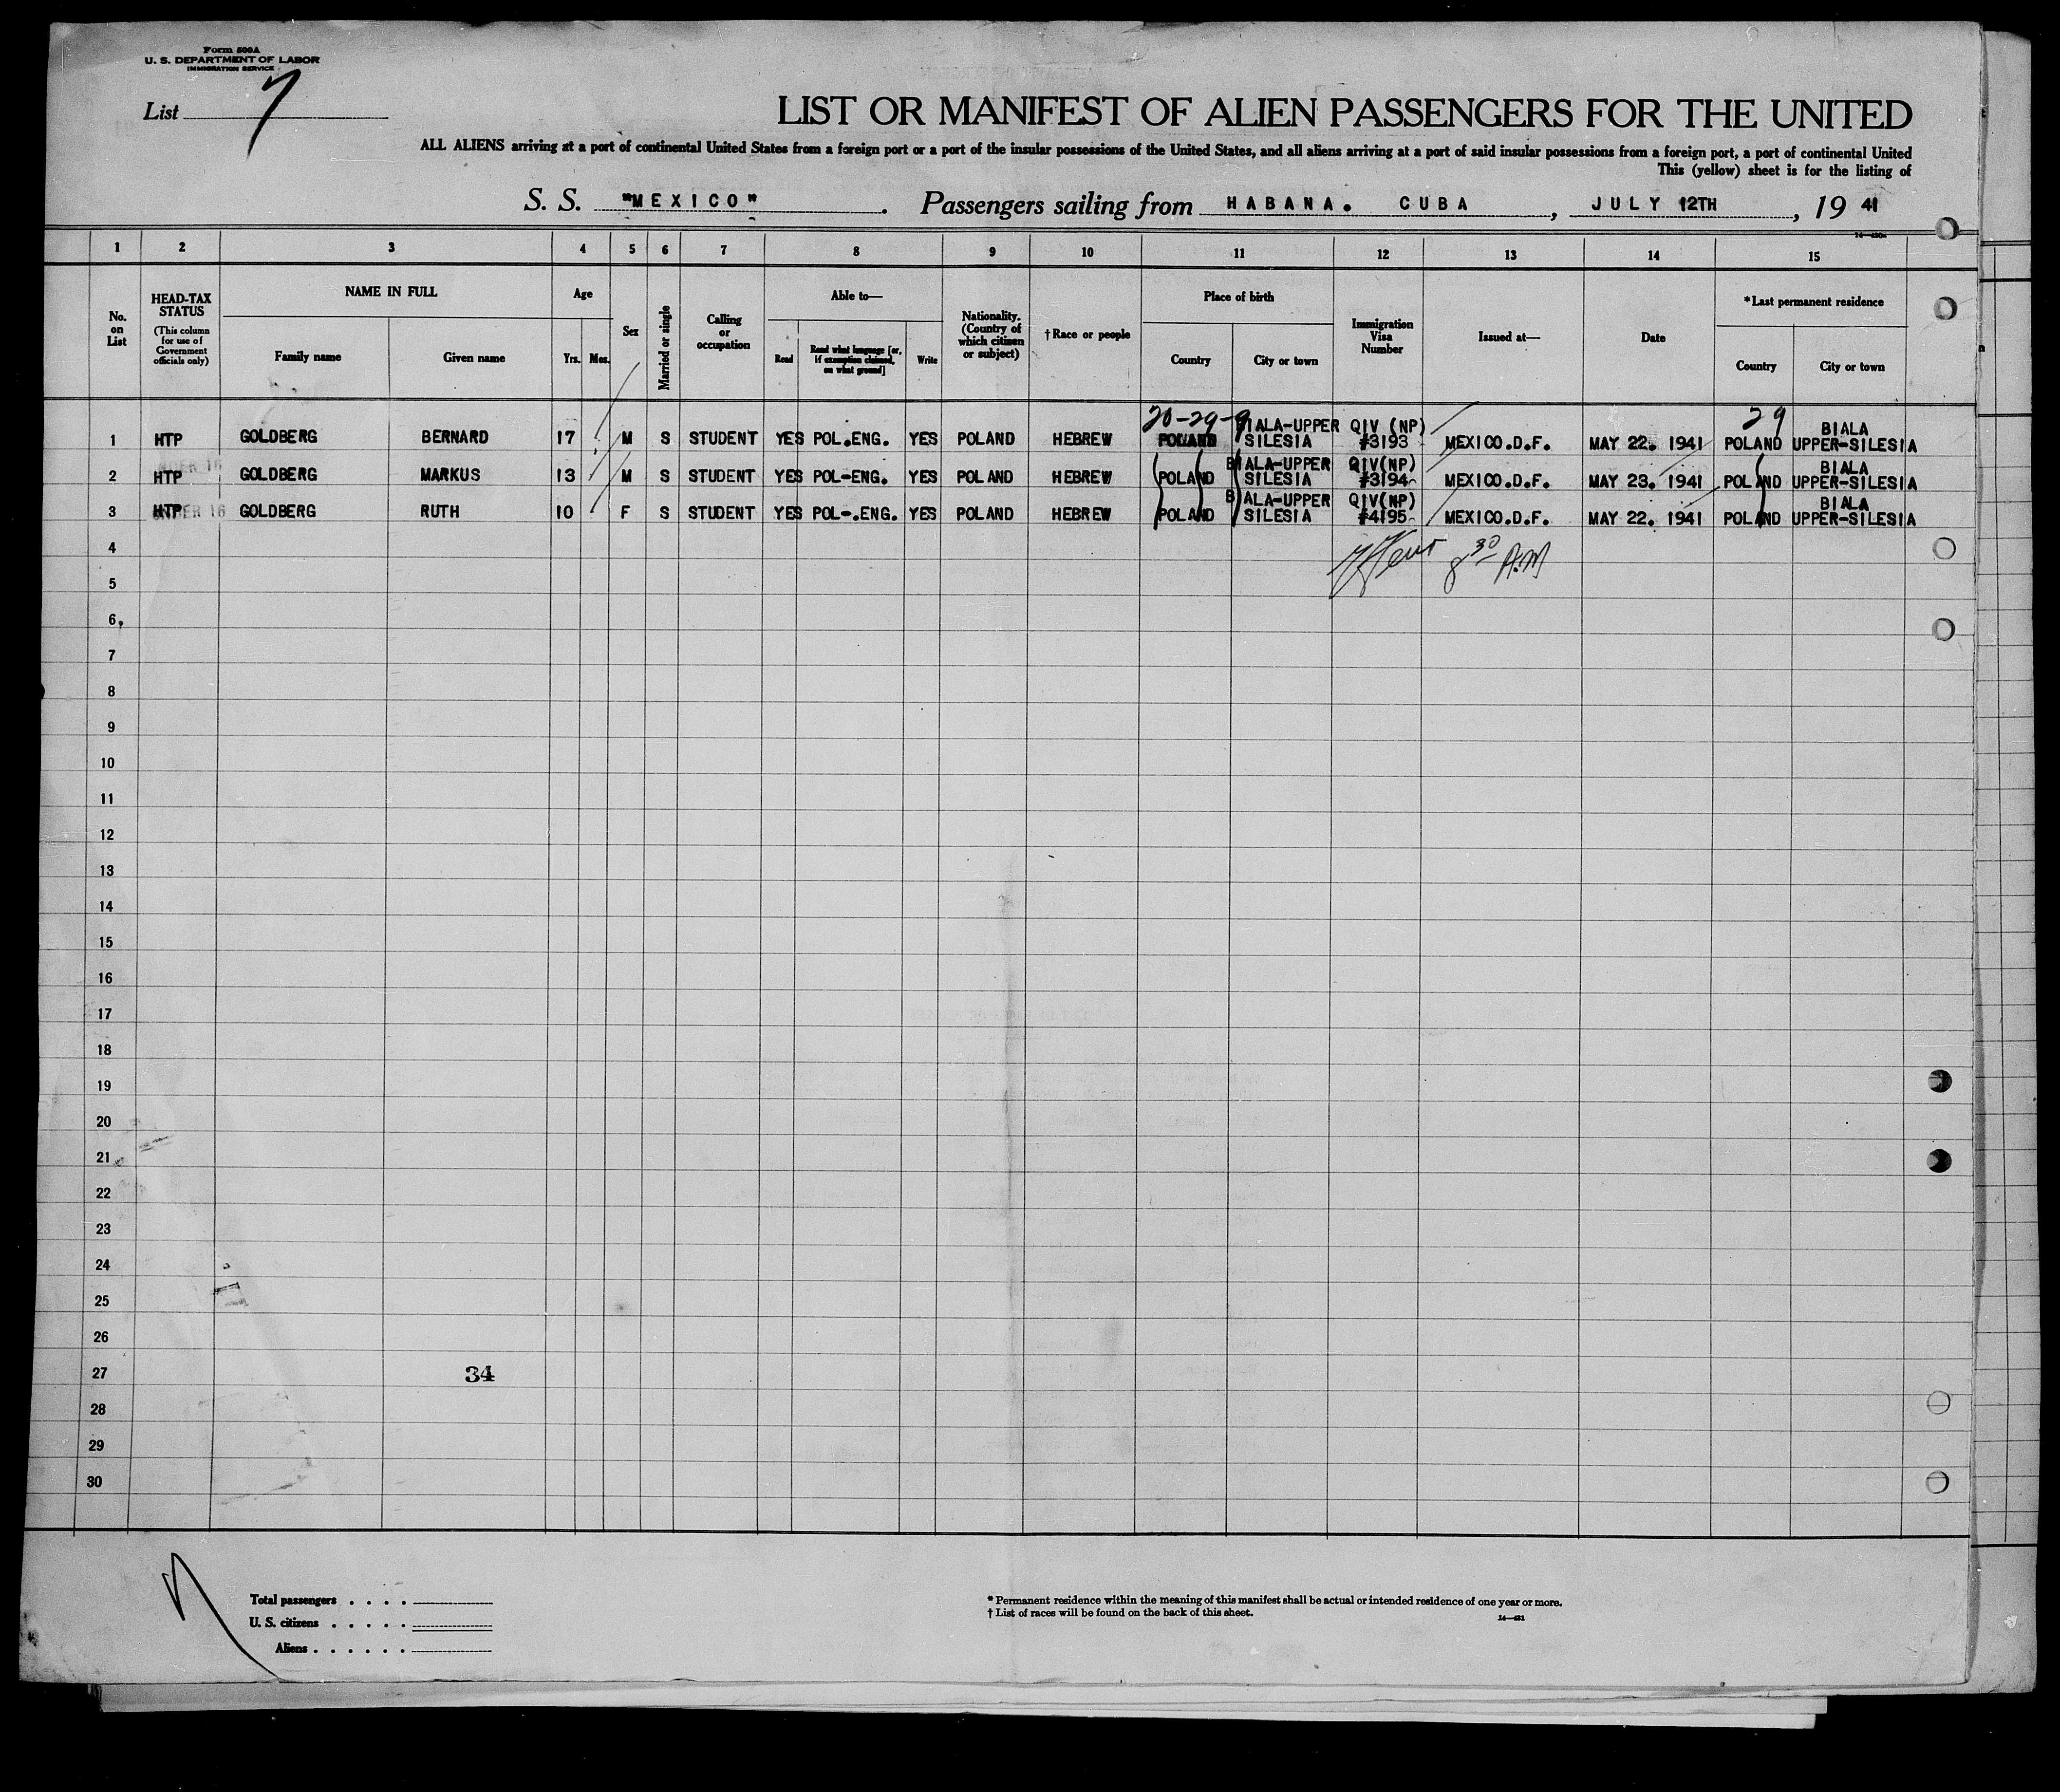 Form 500A
U. S. DEPARTMENT OF LABOR
IMMIGRATION SERVICE
List 7
LIST OR MANIFEST OF ALIEN PASSENGERS FOR THE UNITED
ALL ALIENS arriving at a port of continental United States from a foreign port or a port of the insular possessions of the United States, and all aliens arriving at a port of said insular possessions from a foreign port, a port of continental United
This (yellow) sheet is for the listing of
S. S. "MEXICO". Passengers sailing from HABANA. CUBA, JULY 12TH, 19 41
1 2 3 4 5 6 7 8 9 10 11 12 13 14 15
No. on List
HEAD-TAX STATUS
(This column for use of Government officials only)
NAME IN FULL
Family name
Given name
Age
Yrs.
Mos.
Sex
Married or single
Calling or occupation
Able to—
Read
Read what language [or, if exemption claimed, on what ground]
Write
Nationality. (Country of which citizen or subject)
† Race or people
Place of birth
Country
City or town
Immigration Visa Number
Issued at—
Date
*Last permanent residence
Country
City or town
20-29-9 29
1 HTP GOLDBERG BERNARD 17 M S STUDENT YES POL.ENG. YES POLAND HEBREW POLAND BIALA-UPPER SILESIA QIV (NP) #3193 MEXICO.D.F. MAY 22. 1941 POLAND BIALA UPPER-SILESIA
2 HTP GOLDBERG MARKUS 13 M S STUDENT YES POL-ENG. YES POLAND HEBREW POLAND BIALA-UPPER SILESIA QIV(NP) #3194 MEXICO.D.F. MAY 23. 1941 POLAND BIALA UPPER-SILESIA
3 HTP GOLDBERG RUTH 10 F S STUDENT YES POL-.ENG. YES POLAND HEBREW POLAND BIALA-UPPER SILESIA QIV(NP) #4195 MEXICO.D.F. MAY 22. 1941 POLAND BIALA UPPER-SILESIA
4
8 30 A.M
5
6
7
8
9
10
11
12
13
14
15
16
17
18
19
20
21
22
23
24
25
26
27 34
28
29
30
Total passengers . . . .
U. S. citizens . . . . .
Aliens . . . . . .
* Permanent residence within the meaning of this manifest shall be actual or intended residence of one year or more.
† List of races will be found on the back of this sheet.
14—421